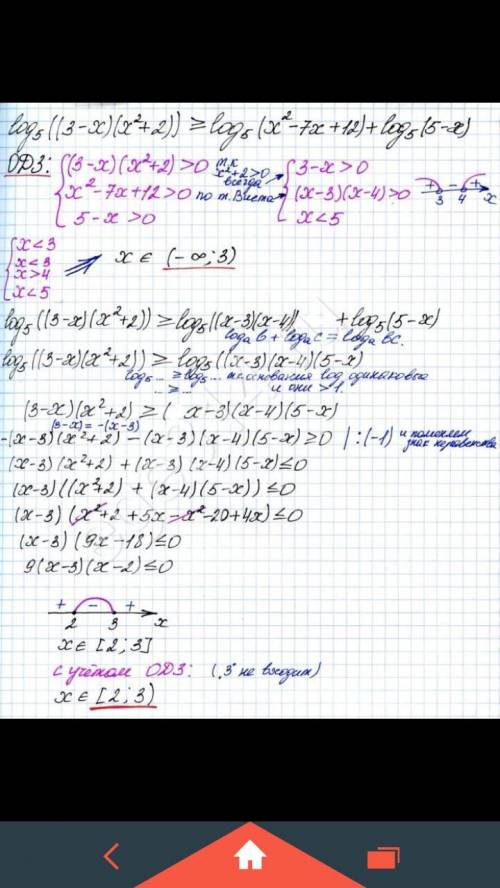 log₅((3-x)(x²+2)) ≥ log₅(x²-7x+12) + log₅(5-x)
ОДЗ: { (3-x)(x²+2)>0 т.к x²+2>0 всегда { 3-x>0
x²-7x+12>0 по т. Виета (x-3)(x-4)>0 + - + 3 4 x
5-x>0 x<5
{ x<3
x<3
x>4 ⇒ x ∈ (-∞; 3)
x<5
log₅((3-x)(x²+2)) ≥ log₅((x-3)(x-4)) + log₅(5-x)
logₐb + logₐc = logₐbc.
log₅((3-x)(x²+2)) ≥ log₅((x-3)(x-4)(5-x)
log₅... ≥ log₅... т.к основания log одинаковые
... ≥ ... и они >1.
(3-x)(x²+2) ≥ ( x-3)(x-4)(5-x)
(3-x) = -(x-3)
-(x-3)(x²+2) - (x-3)(x-4)(5-x) ≥ 0 | : (-1) и поменяем знак неравенства
(x-3)(x²+2) + (x-3)(x-4)(5-x) ≤ 0
(x-3)((x²+2) + (x-4)(5-x)) ≤ 0
(x-3)(x²+2+5x-x²-20+4x) ≤ 0
(x-3)(9x-18) ≤ 0
9(x-3)(x-2) ≤ 0
+ - +
2 3 x
x ∈ [2; 3]
с учётом ОДЗ: (3 не входит)
x ∈ [2; 3)